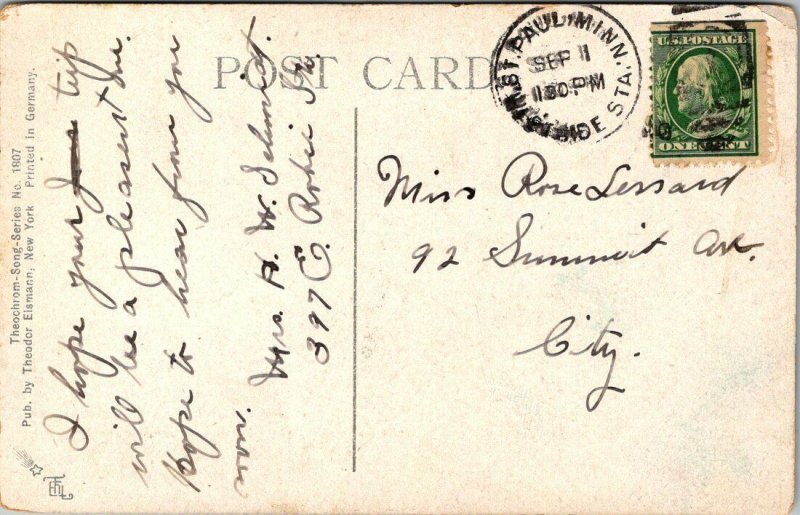 Theochrom-Song-Series No. 1807
Pub. by Theodor Eismann; New York Printed in Germany.
I hope your trip
will be a pleasant one.
Hope to hear from you
soon.
Mrs. H. W. Schmidt.
397 E. Robie St.
POST CARD
ST. PAUL, MINN.
SEP 11
1130 PM
SIDE STA.
U.S. POSTAGE
ONE CENT
Miss Rose Lessard
92 Summit Ave.
City.